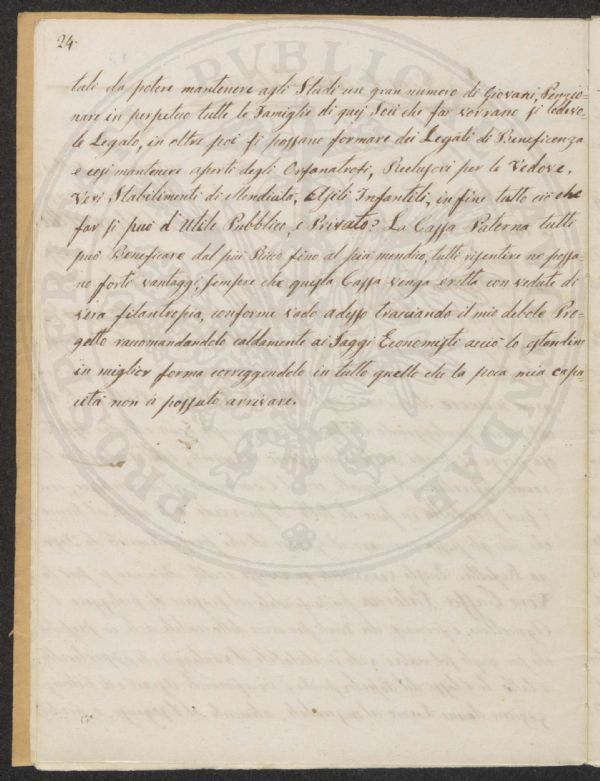 24.
tali da potere mantenere agli Studi un gran numero di Giovani, Penzio-
nare in perpetuo tutte le Famiglie di quej Socj che far vorrano sì lodevo-
le Legato, in oltre poi si possano formare dei Legati di Beneficenza
e così mantenere aperti degli Orfanatrofi, Reclusori per le Vedove,
Veri Stabilimenti di Mendicità, Asili Infantili, in fine tutto ciò che
far si può d'Utile Pubblico, e Privato? La Cassa Paterna tutti
può Beneficare dal più Ricco fino al più mendico, tutti risentire ne possa-
no forti vantaggi, sempre che questa Cassa venga eretta con vedute di
vera filantropia, conforme vado adesso tracciando il mio debole Pro-
getto raccomandandolo caldamente ai Saggi Economisti acciò lo estendino
in miglior forma correggendolo in tutto quello che la poca mia capa-
cità non à possuto arrivare.
PVBLICAE
PROSPERITATI